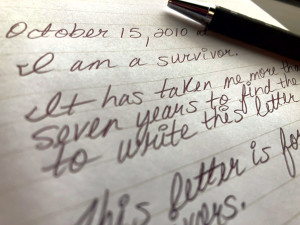 October 15, 2010
I am a survivor.
It has taken me more than
seven years to find the
to write this letter
This letter is for